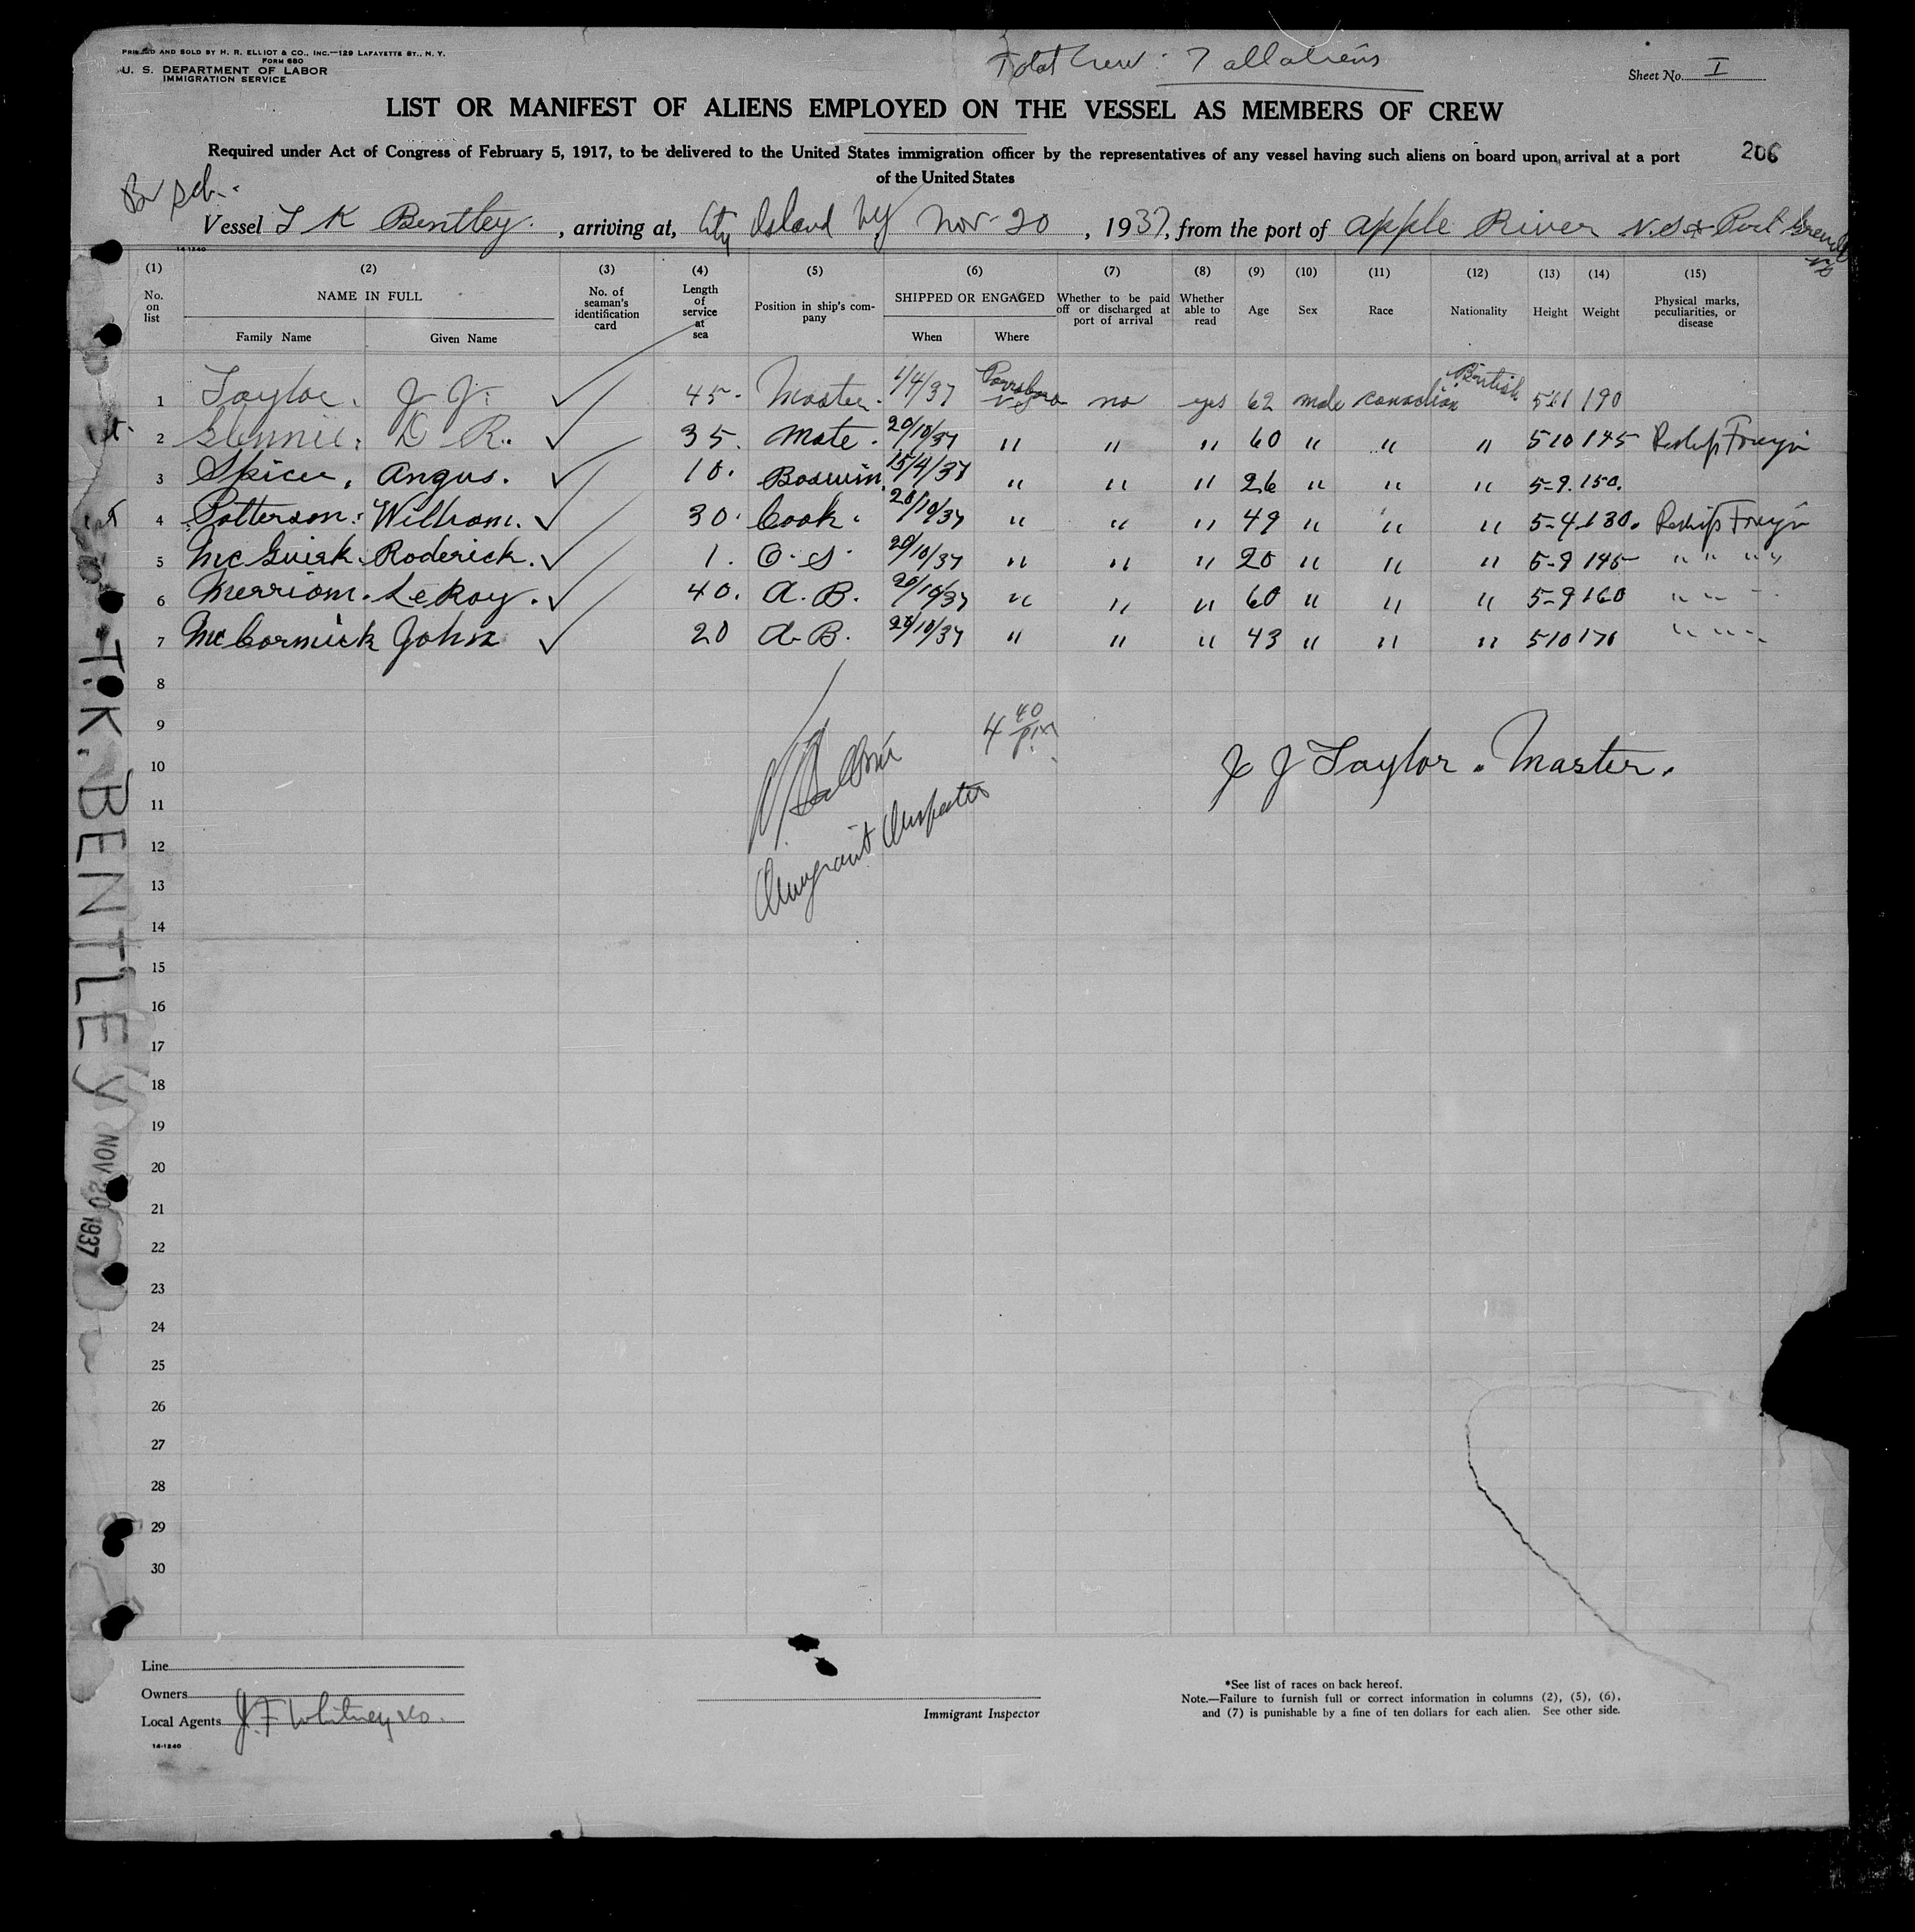 PRINTED AND SOLD BY H. R. ELLIOT & CO., INC.—129 LAFAYETTE ST., N. Y.
FORM 680
U. S. DEPARTMENT OF LABOR
IMMIGRATION SERVICE
Total Crew 7 all aliens
Sheet No. I
LIST OR MANIFEST OF ALIENS EMPLOYED ON THE VESSEL AS MEMBERS OF CREW
Required under Act of Congress of February 5, 1917, to be delivered to the United States immigration officer by the representatives of any vessel having such aliens on board upon arrival at a port
of the United States
206
Br Sch.
Vessel T K Bentley, arriving at, City Island NY Nov 20, 1937, from the port of Apple River N.S. & Port Greville NS
14-1240
(1) No. on list
(2) NAME IN FULL Family Name Given Name
(3) No. of seaman's identification card
(4) Length of service at sea
(5) Position in ship's company
(6) SHIPPED OR ENGAGED When Where
(7) Whether to be paid off or discharged at port of arrival
(8) Whether able to read
(9) Age
(10) Sex
(11) Race
(12) Nationality
(13) Height
(14) Weight
(15) Physical marks, peculiarities, or disease
1 Taylor. J J. 45 Master. 1/4/37 Parrsboro NS no yes 62 male Canadian British 190
2 Glennie. D R. 35. Mate. 20/10/37 " " " 60 " " " 5 10 145 Reship Foreign
3 Spicer, Angus. 10. Boswin. 15/4/37 " " " 26 " " " 5-9. 150.
4 Patterson. William. 30. Cook. 20/10/37 " " " 49 " " " 5-4 130. Reship Foreign
5 McGuirk Roderick. 1. O. S. 20/10/37 " " " 20 " " " 5-9 145 " " " "
6 Merriam. LeRoy. 40. A. B. 20/10/37 " " " 60 " " " 5-9 160 " "
7 McCormick John 20 A. B. 20/10/37 " " " 43 " " " 5 10 170 " " "
8
9
4 40 pm
10
J J Taylor. Master.
11
Immigrant Inspector
12
13
14
15
16
17
18
19
20
21
22
23
24
25
26
27
28
29
30
T. K. BENTLEY
NOV 20 1937
Line
Owners
Local Agents J. F Whitney & Co.
14-1240
Immigrant Inspector
*See list of races on back hereof.
Note.—Failure to furnish full or correct information in columns (2), (5), (6),
and (7) is punishable by a fine of ten dollars for each alien. See other side.